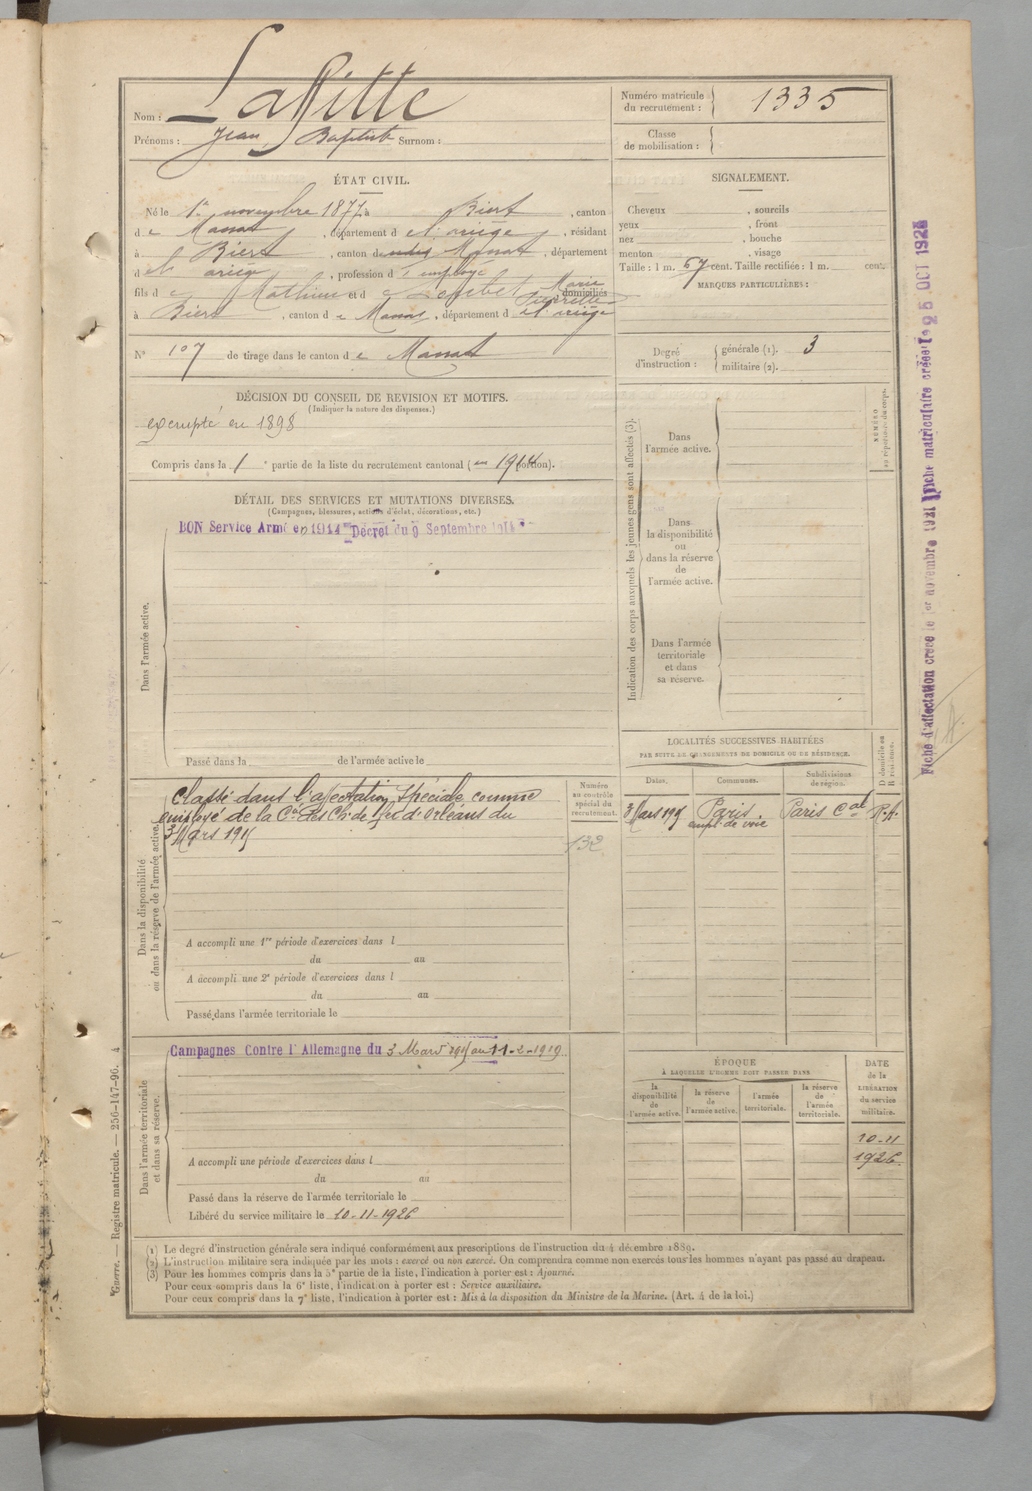 Nom : Laffitte
Prénoms : Jean Baptiste Surnom :
Numéro matricule du recrutement : 1335
Classe de mobilisation :
ÉTAT CIVIL.
Né le 1er novembre 1877, à Biert, canton
de Massat, département de l'ariège, résidant
à Biert, canton dudit Massat, département
de l' ariège, profession d'employé
fils de Mathieu et de Marie Pierrette domiciliés
à Biert, canton de Massat, département de l'ariège
N° 107 de tirage dans le canton de Massat
SIGNALEMENT.
Cheveux , sourcils
yeux , front
nez , bouche
menton , visage
Taille : 1 m. 57 cent. Taille rectifiée : 1 m. cent.
MARQUES PARTICULIÈRES :
Degré d'instruction : générale (1). 3
militaire (2).
DÉCISION DU CONSEIL DE REVISION ET MOTIFS.
(Indiquer la nature des dispenses.)
exempté en 1898
Compris dans la 1 partie de la liste du recrutement cantonal (en 1914 portion).
DÉTAIL DES SERVICES ET MUTATIONS DIVERSES.
(Campagnes, blessures, actions d'éclat, décorations, etc.)
BON Service Armé en 1914 Décret du 9 Septembre 1914
Dans l'armée active.
Passé dans la de l'armée active le
Indication des corps auxquels les jeunes gens sont affectés (3).
Dans l'armée active.
Dans la disponibilité ou dans la réserve de l'armée active.
Dans l'armée territoriale et dans sa réserve.
NUMÉRO au répertoire du corps.
Dans la disponibilité ou dans la réserve de l'armée active.
Classé dans l'affectation Spéciale, comme
employé de la Cie des Ch. de fer d'Orléans du
3 Mars 1915
A accompli une 1re période d'exercices dans l
du au
A accompli une 2e période d'exercices dans l
du au
Passé dans l'armée territoriale le
Numéro au contrôle spécial du recrutement.
132
LOCALITÉS SUCCESSIVES HABITÉES
PAR SUITE DE CHANGEMENTS DE DOMICILE OU DE RÉSIDENCE.
Dates. Communes. Subdivisions de région. D. domicile ou R. résidence.
3 Mars 1915 Paris. Paris Cal R.A.
empl. de voie
Dans l'armée territoriale et dans sa réserve.
Campagnes Contre l'Allemagne du 3 Mars 1915 au 11-2-1919
A accompli une période d'exercices dans l
du au
Passé dans la réserve de l'armée territoriale le
Libéré du service militaire le 10-11-1926
ÉPOQUE
À LAQUELLE L'HOMME DOIT PASSER DANS
la disponibilité de l'armée active. la réserve de l'armée active. l'armée territoriale. la réserve de l'armée territoriale.
DATE de la LIBÉRATION du service militaire.
10-11
1926
(1) Le degré d'instruction générale sera indiqué conformément aux prescriptions de l'instruction du 4 décembre 1889.
(2) L'instruction militaire sera indiquée par les mots : exercé ou non exercé. On comprendra comme non exercés tous les hommes n'ayant pas passé au drapeau.
(3) Pour les hommes compris dans la 5e partie de la liste, l'indication à porter est : Ajourné.
Pour ceux compris dans la 6e liste, l'indication à porter est : Service auxiliaire.
Pour ceux compris dans la 7e liste, l'indication à porter est : Mis à la disposition du Ministre de la Marine. (Art. 4 de la loi.)
Guerre. — Registre matricule. — 256-147-96. 4
Fiche d'affectation créée le 1er novembre 1921 Fiche matriculaire créée le 25 OCT 1926